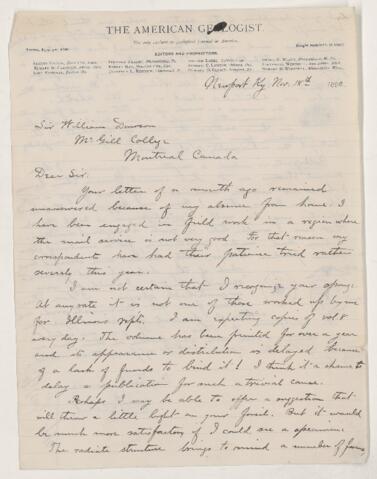 THE AMERICAN GEOLOGIST.
EDITORS AND PROPRIETORS.
Newport Ky Nov. 18th
Sir William Dawson
McGill College
Montreal Canada
Dear Sir.
Your letter of a month ago remained
unanswered because of my absence from home. I
have been engaged in field work in a region where
the mail service is not very good. For that reason my
correspondents have had their patience tried rather
severely this year.
I am not certain that I recognize your sponge.
At any rate it is not one of those worked up by me
for Illinois repts. I am expecting copies of vol 8
every day. The volume has been printed for over a year
and its appearance or distribution is delayed because
of a lack of funds to bind it! I think it a shame to
delay a publication for such a trivial cause.
Perhaps I may be able to offer a suggestion that
will throw a little light on your fossil. But it would
be much more satisfactory if I could see a specimen.
The radiate structure brings to mind a number of forms,